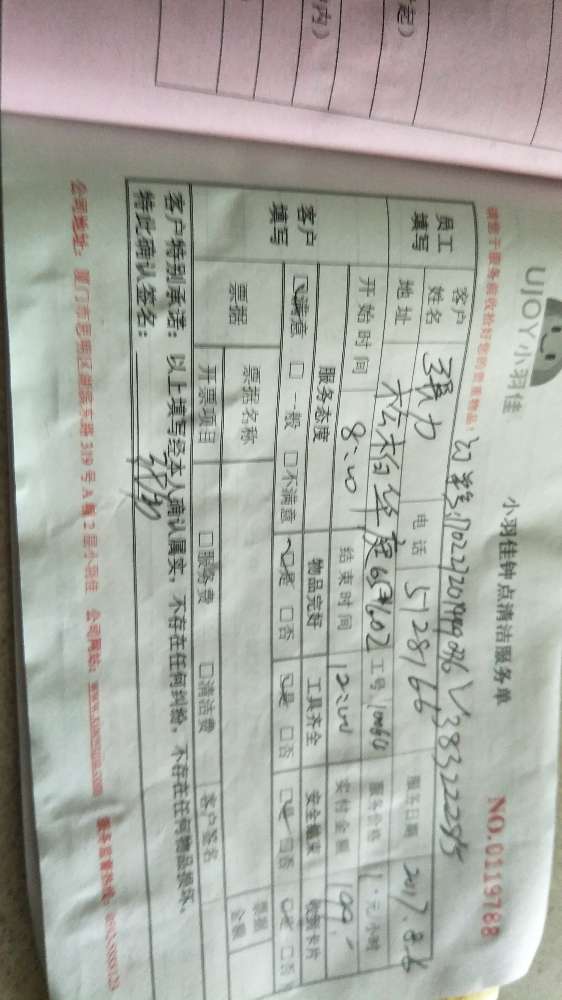 起）
内）
UJOY小羽佳
小羽佳钟点清洁服务单
NO.0119788
请您于服务前收拾好您的贵重物品！
员工填写
客户姓名
张力
电话
5128166
服务日期
2017.8.6
地址
松柏华庭
602
工号
服务价格
元/小时
开始时间
8:00
结束时间
12:00
实付金额
100
客户填写
服务态度
物品完好
工具齐全
收据卡片
☑满意 □一般 □不满意
☑是 □否
☑是 □否
☑是 □否
☑是 □否
票据
票据名称
开票项目
□服务费 □清洁费
客户签名
票据金额
客户特别承诺：以上填写经本人确认属实，不存在任何纠纷，不存在任何物品损坏，
特此确认签名：
张力
公司地址：厦门市思明区湖滨东路319号A幢2层小羽佳 公司网站：